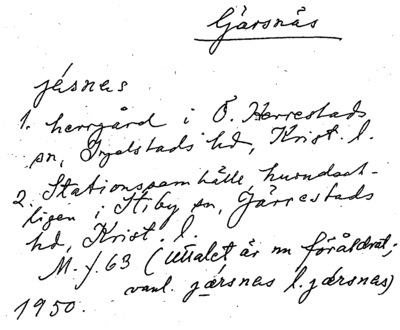 Gärsnäs
jésnas
1. herrgård i Ö. Herrestads
sn, Ingelstads hd, Krist. l.
2. Stationssamhälle, huvudsak-
ligen i Stiby sn, Järrestads
hd, Krist. l.
M. f. 63 (Uttalet är nu föråldrat;
vanl. järsnas l. jǽrsnas)
1950.